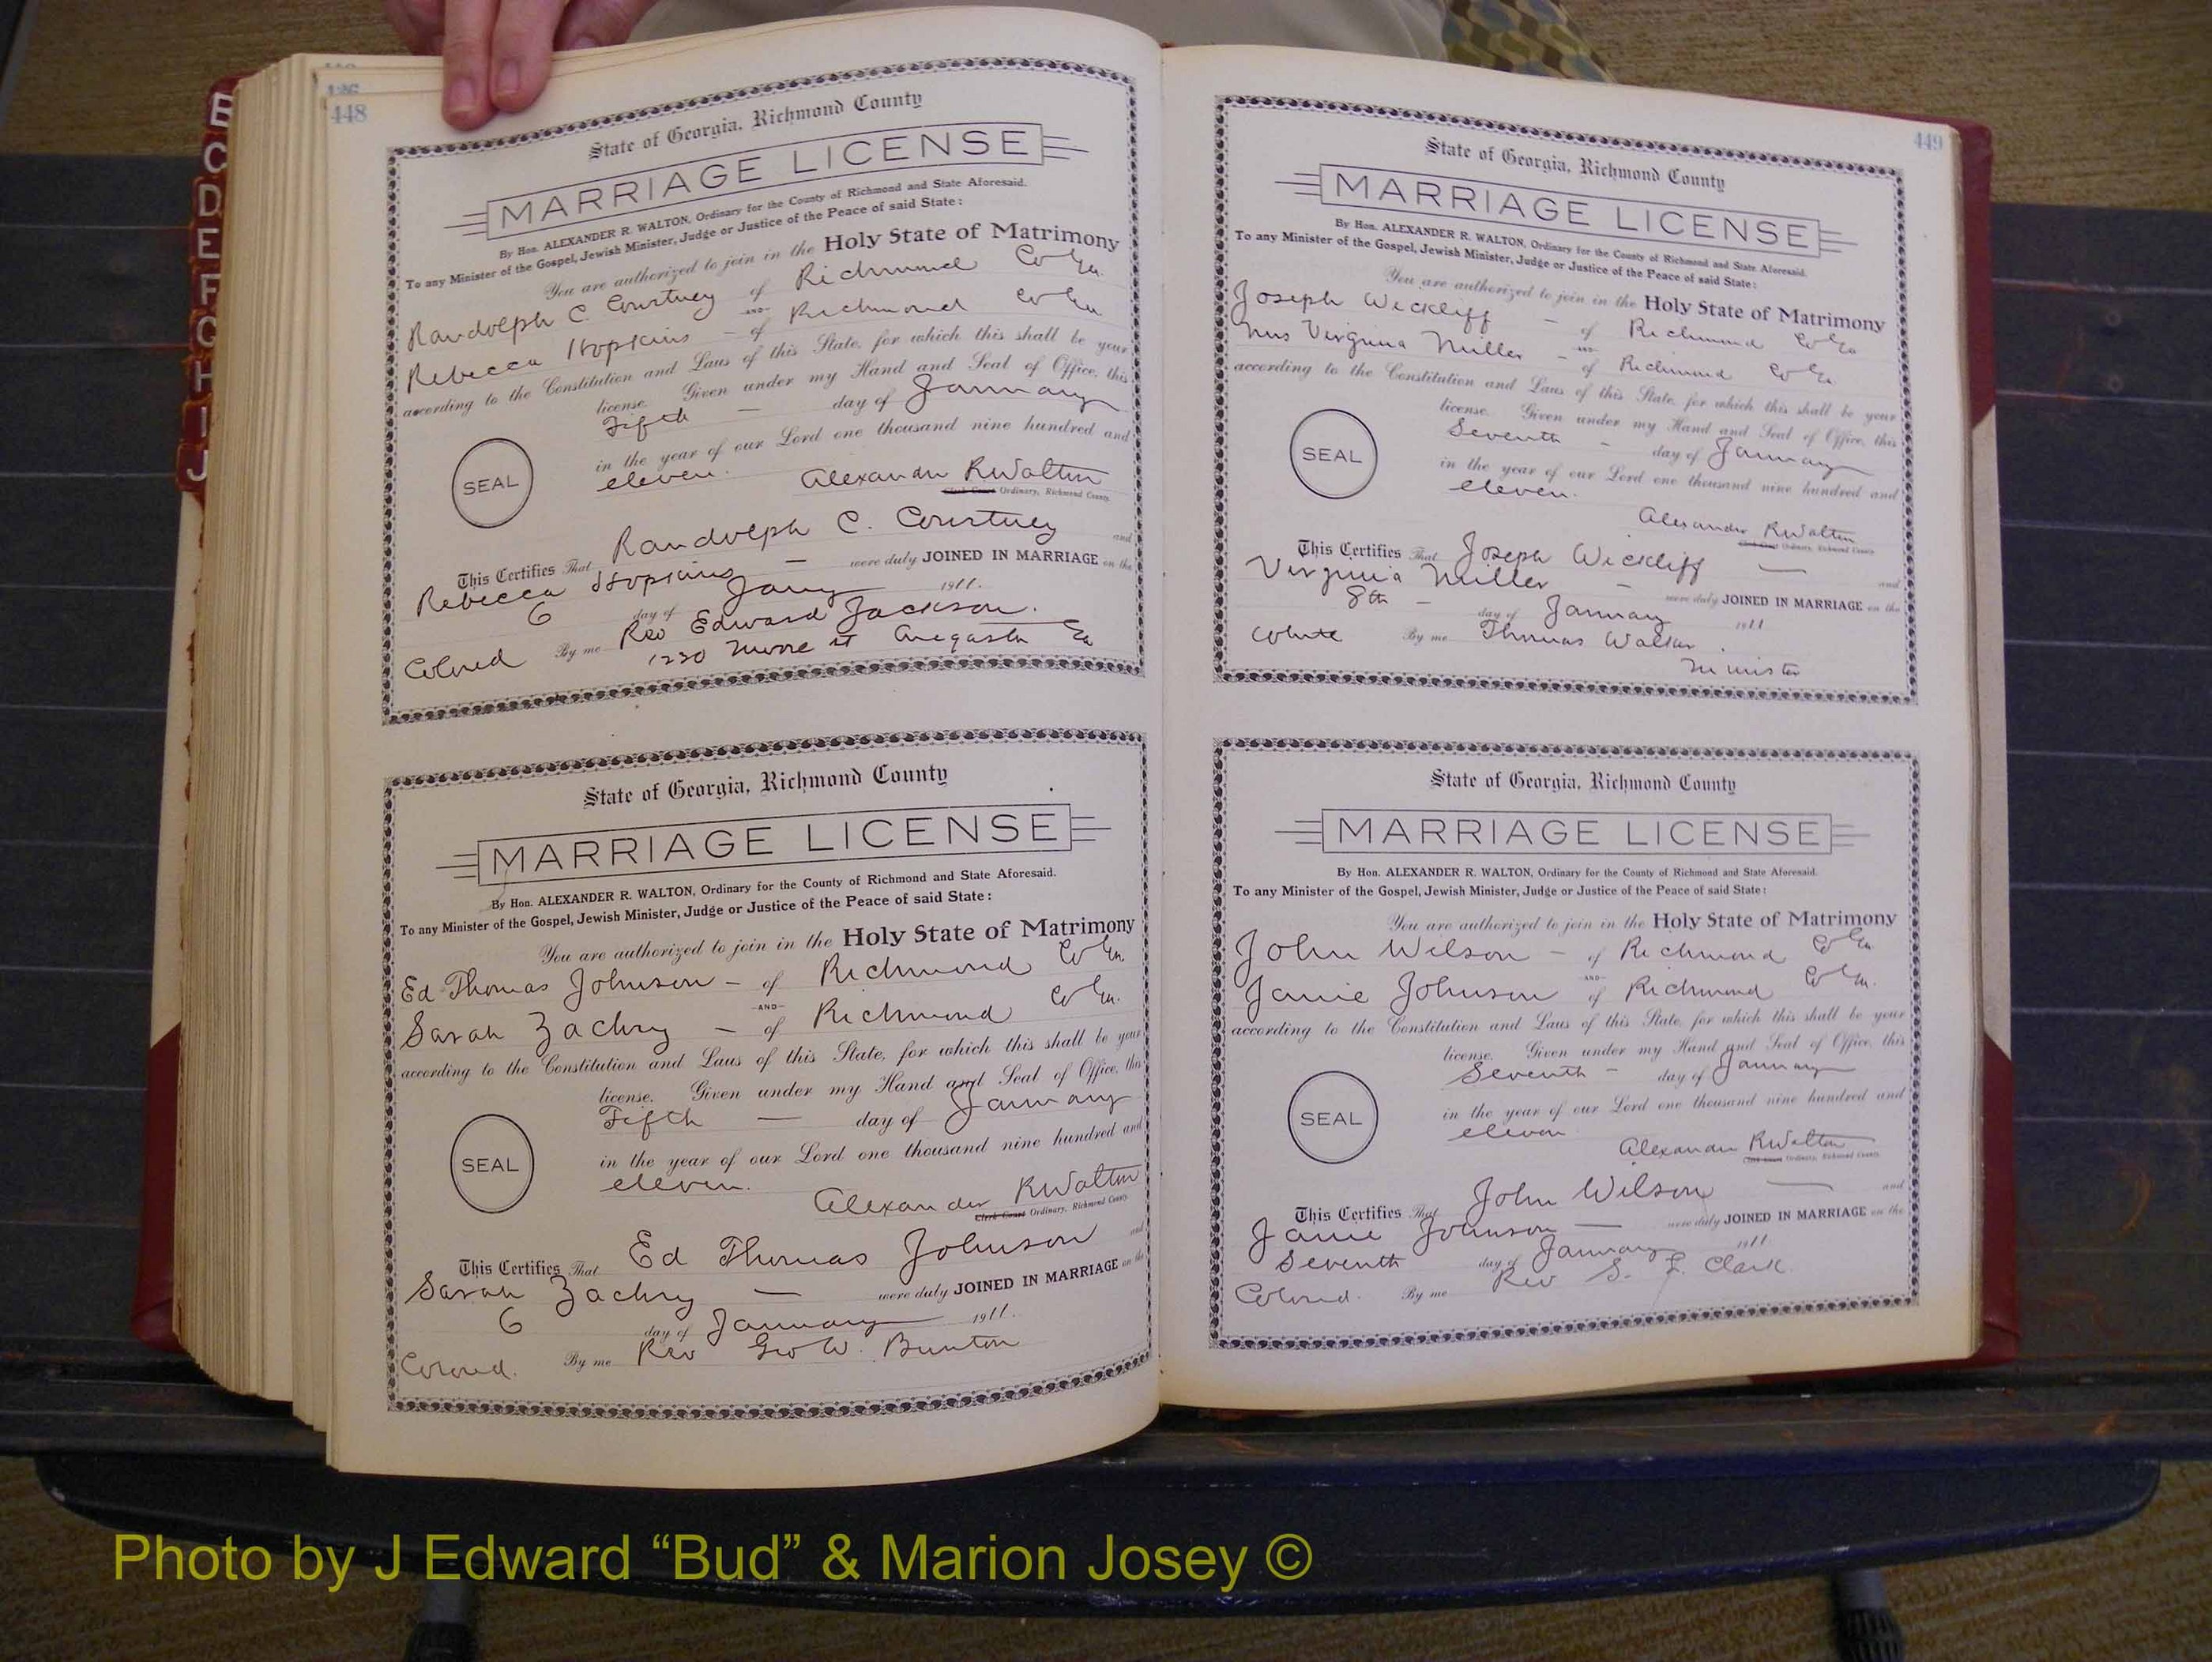 B
C
D
E
F
G
H
I
J
448
State of Georgia, Richmond County
MARRIAGE LICENSE
By Hon. ALEXANDER R. WALTON, Ordinary for the County of Richmond and State Aforesaid.
To any Minister of the Gospel, Jewish Minister, Judge or Justice of the Peace of said State:
You are authorized to join in the Holy State of Matrimony
Randolph C. Courtney of Richmond Co Ga.
-AND-
Rebecca Hopkins - of Richmond Co Ga
according to the Constitution and Laws of this State, for which this shall be your
license. Given under my Hand and Seal of Office, this
Fifth - day of January
in the year of our Lord one thousand nine hundred and
eleven.
SEAL
Alexander R Walton
Clerk Court Ordinary, Richmond County
This Certifies That Randolph C. Courtney and
Rebecca Hopkins - were duly JOINED IN MARRIAGE on the
6 day of Jany 1911.
Colored By me Rev Edward Jackson.
1230 Moore st Augusta Ga
State of Georgia, Richmond County
MARRIAGE LICENSE
By Hon. ALEXANDER R. WALTON, Ordinary for the County of Richmond and State Aforesaid.
To any Minister of the Gospel, Jewish Minister, Judge or Justice of the Peace of said State:
You are authorized to join in the Holy State of Matrimony
Ed Thomas Johnson - of Richmond Co Ga.
-AND-
Sarah Zachry - of Richmond Co Ga.
according to the Constitution and Laws of this State, for which this shall be your
license. Given under my Hand and Seal of Office, this
Fifth - day of January
in the year of our Lord one thousand nine hundred and
eleven.
SEAL
Alexander R Walton
Clerk Court Ordinary, Richmond County
This Certifies That Ed Thomas Johnson and
Sarah Zachry - were duly JOINED IN MARRIAGE on the
6 day of January 1911.
Colored. By me Rev Geo W. Bunton
449
State of Georgia, Richmond County
MARRIAGE LICENSE
By Hon. ALEXANDER R. WALTON, Ordinary for the County of Richmond and State Aforesaid.
To any Minister of the Gospel, Jewish Minister, Judge or Justice of the Peace of said State:
You are authorized to join in the Holy State of Matrimony
Joseph Wickliff - of Richmond Co Ga
-AND-
Mrs Virginia Miller - of Richmond Co Ga
according to the Constitution and Laws of this State, for which this shall be your
license. Given under my Hand and Seal of Office, this
Seventh - day of January
in the year of our Lord one thousand nine hundred and
eleven.
SEAL
Alexander R Walton
Clerk Court Ordinary, Richmond County
This Certifies That Joseph Wickliff - and
Virginia Miller - were duly JOINED IN MARRIAGE on the
8th - day of January 1911
White By me Thomas Walker.
Minister
State of Georgia, Richmond County
MARRIAGE LICENSE
By Hon. ALEXANDER R. WALTON, Ordinary for the County of Richmond and State Aforesaid.
To any Minister of the Gospel, Jewish Minister, Judge or Justice of the Peace of said State:
You are authorized to join in the Holy State of Matrimony
John Wilson - of Richmond Co Ga.
-AND-
Janie Johnson of Richmond Co Ga.
according to the Constitution and Laws of this State, for which this shall be your
license. Given under my Hand and Seal of Office, this
Seventh - day of January
in the year of our Lord one thousand nine hundred and
eleven
SEAL
Alexander R Walton
Clerk Court Ordinary, Richmond County
This Certifies That John Wilson - and
Janie Johnson - were duly JOINED IN MARRIAGE on the
Seventh day of January 1911
Colored. By me Rev S. L. Clark.
Photo by J Edward “Bud” & Marion Josey ©